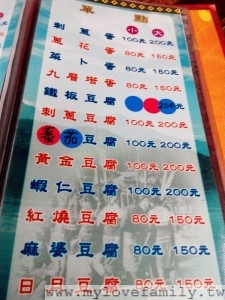 單 點
小 大
刺蔥蛋 100元 200元
蔥花蛋 80元 150元
菜卜蛋 80元 150元
九層塔蛋 80元 150元
鐵板豆腐 200元
刺蔥豆腐 100元 200元
蕃茄豆腐 100元 200元
黃金豆腐 100元 200元
蝦仁豆腐 100元 200元
紅燒豆腐 80元 150元
麻婆豆腐 80元 150元
日日豆腐 80元 150元
www.mylovefamily.tw